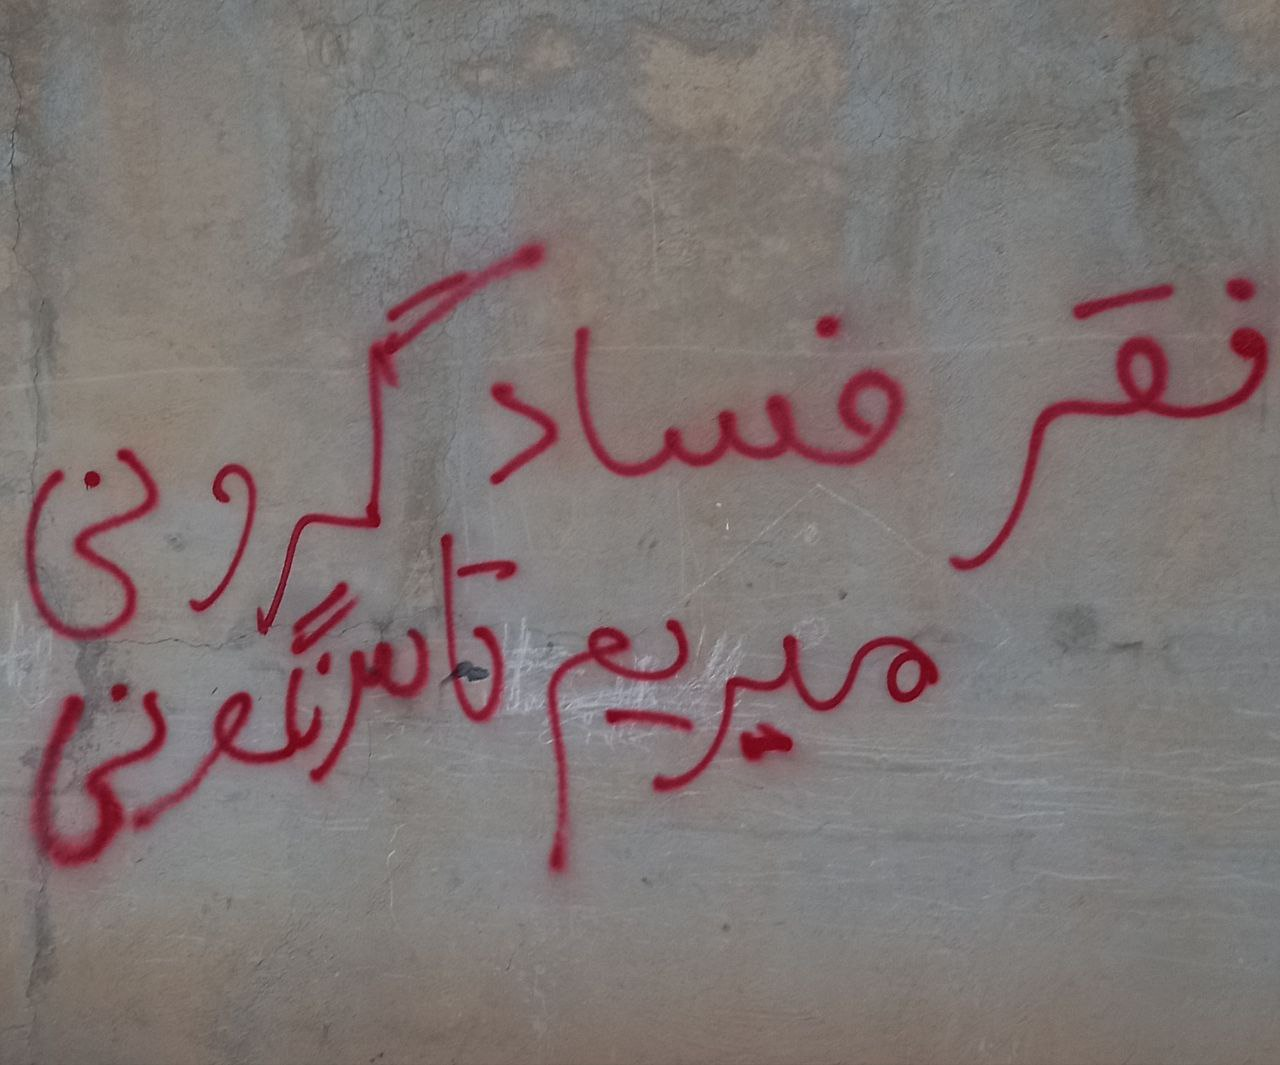 فقر فساد گرونی
میریم تا سرنگونی